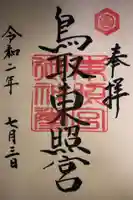 奉拝
鳥取東照宮
令和二年
七月三日